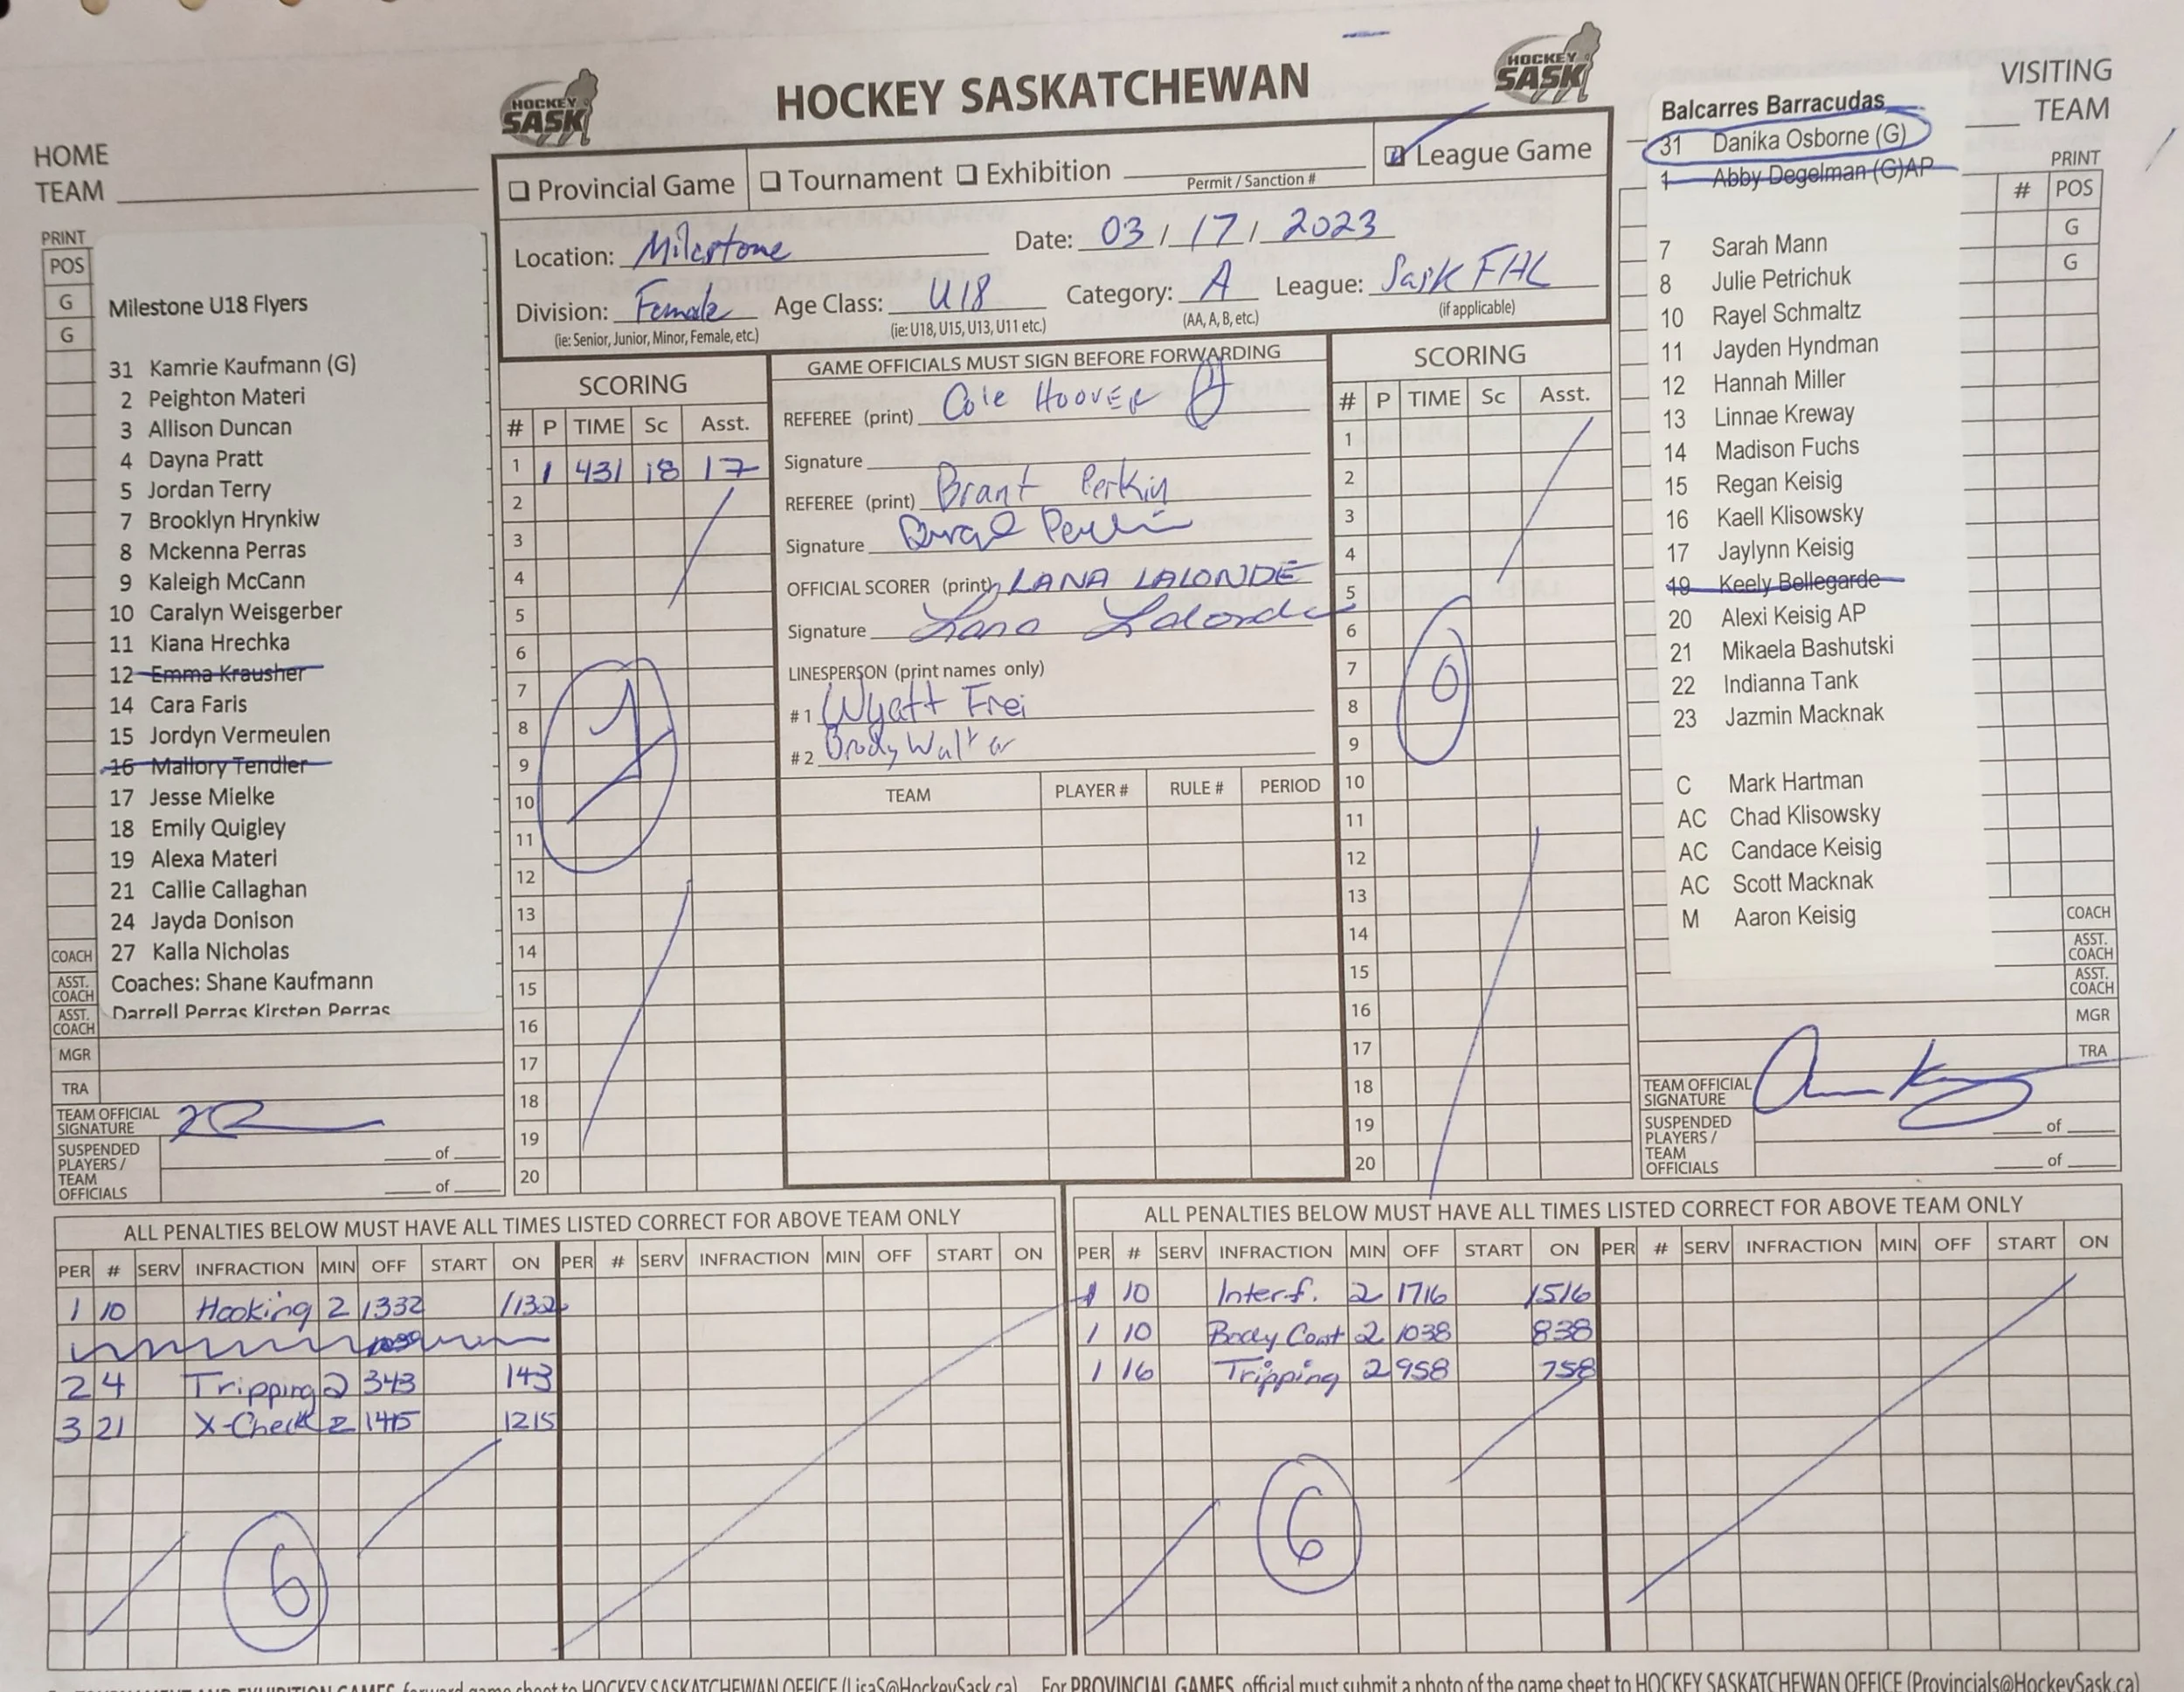 HOCKEY SASK
HOCKEY SASKATCHEWAN
HOCKEY SASK
HOME TEAM
VISITING TEAM
❑ Provincial Game
❑ Tournament ❑ Exhibition
Permit / Sanction #
❑ League Game
Location: Milestone
Date: 03 / 17 / 2023
Division: Female
Age Class: U18
Category: A
League: Sask FHL
(ie: Senior, Junior, Minor, Female, etc.)
(ie: U18, U15, U13, U11 etc.)
(AA, A, B, etc.)
(if applicable)
PRINT
POS
G
G
Milestone U18 Flyers
31 Kamrie Kaufmann (G)
2 Peighton Materi
3 Allison Duncan
4 Dayna Pratt
5 Jordan Terry
7 Brooklyn Hrynkiw
8 Mckenna Perras
9 Kaleigh McCann
10 Caralyn Weisgerber
11 Kiana Hrechka
12 Emma Krausher
14 Cara Faris
15 Jordyn Vermeulen
16 Mallory Tendler
17 Jesse Mielke
18 Emily Quigley
19 Alexa Materi
21 Callie Callaghan
24 Jayda Donison
27 Kalla Nicholas
Coaches: Shane Kaufmann
Darrell Perras Kirsten Perras
COACH
ASST. COACH
ASST. COACH
MGR
TRA
TEAM OFFICIAL SIGNATURE
SUSPENDED PLAYERS / TEAM OFFICIALS
of
of
SCORING
# P TIME Sc Asst.
1 1 431 18 17
2
3
4
5
6
7
8
9
10
11
12
13
14
15
16
17
18
19
20
1
GAME OFFICIALS MUST SIGN BEFORE FORWARDING
REFEREE (print) Cole Hoover
Signature
REFEREE (print) Brant Perkin
Signature
OFFICIAL SCORER (print) LANA LALONDE
Signature Lana Lalonde
LINESPERSON (print names only)
#1 Wyatt Frei
#2 Brody Walter
TEAM PLAYER # RULE # PERIOD
SCORING
# P TIME Sc Asst.
1
2
3
4
5
6
7
8
9
10
11
12
13
14
15
16
17
18
19
20
0
Balcarres Barracudas
31 Danika Osborne (G)
1 Abby Degelman (G)AP
7 Sarah Mann
8 Julie Petrichuk
10 Rayel Schmaltz
11 Jayden Hyndman
12 Hannah Miller
13 Linnae Kreway
14 Madison Fuchs
15 Regan Keisig
16 Kaell Klisowsky
17 Jaylynn Keisig
19 Keely Bellegarde
20 Alexi Keisig AP
21 Mikaela Bashutski
22 Indianna Tank
23 Jazmin Macknak
C Mark Hartman
AC Chad Klisowsky
AC Candace Keisig
AC Scott Macknak
M Aaron Keisig
PRINT
# POS
G
G
COACH
ASST. COACH
ASST. COACH
MGR
TRA
TEAM OFFICIAL SIGNATURE
SUSPENDED PLAYERS / TEAM OFFICIALS
of
of
ALL PENALTIES BELOW MUST HAVE ALL TIMES LISTED CORRECT FOR ABOVE TEAM ONLY
PER # SERV INFRACTION MIN OFF START ON PER # SERV INFRACTION MIN OFF START ON
1 10 Hooking 2 1332 1132
2 4 Tripping 2 343 143
3 21 X-Check 2 1415 1215
6
ALL PENALTIES BELOW MUST HAVE ALL TIMES LISTED CORRECT FOR ABOVE TEAM ONLY
PER # SERV INFRACTION MIN OFF START ON PER # SERV INFRACTION MIN OFF START ON
1 10 Interf. 2 1716 1516
1 10 Body Cont 2 1038 838
1 16 Tripping 2 958 758
6
GAMES, forward game sheet to HOCKEY SASKATCHEWAN OFFICE (LisaS@HockeySask.ca) For PROVINCIAL GAMES, official must submit a photo of the game sheet to HOCKEY SASKATCHEWAN OFFICE (Provincials@HockeySask.ca)